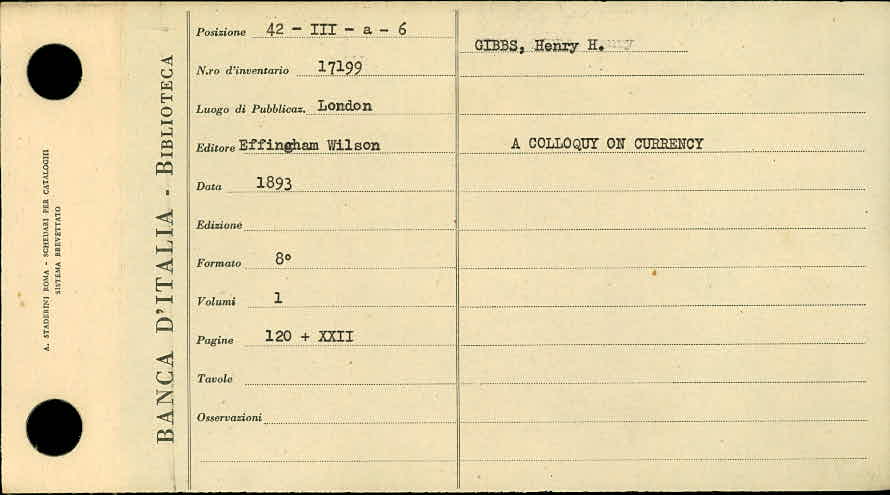 A. STADERINI ROMA - SCHEDARI PER CATALOGHI
SISTEMA BREVETTATO
BANCA D'ITALIA - BIBLIOTECA
Posizione 42 - III - a - 6
N.ro d'inventario 17199
Luogo di Pubblicaz. London
Editore Effingham Wilson
Data 1893
Edizione
Formato 8°
Volumi 1
Pagine 120 + XXII
Tavole
Osservazioni
GIBBS, Henry H.
A COLLOQUY ON CURRENCY